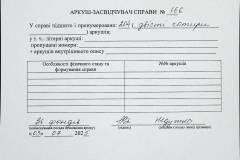 АРКУШ-ЗАСВІДЧУВАЧ СПРАВИ № 166
У справі підшито і пронумеровано: 204 (двісті чотири
) аркушів;
у т. ч.: літерні аркуші:
пропущені номери:
+ аркушів внутрішнього опису
Особливості фізичного стану та формування справи
№№ аркушів
Зб фондів
«03» 07 202